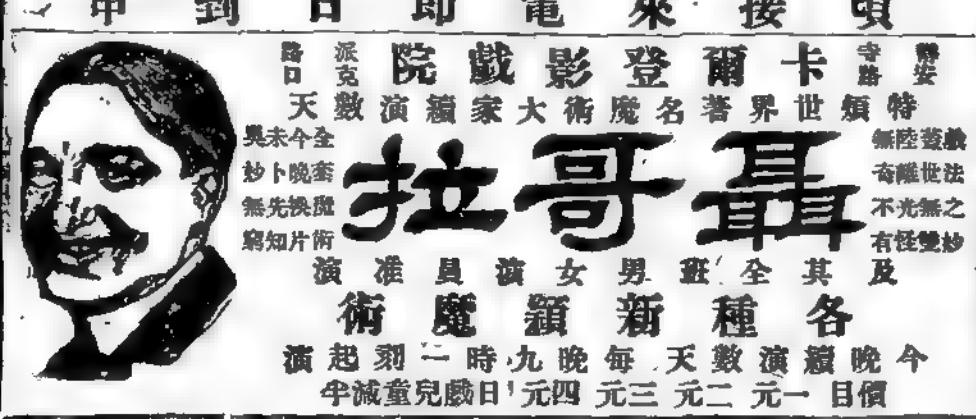 頃接來電即日到申
靜安寺路
卡爾登影戲院
派克路口
特煩世界著名魔術大家續演數天
戲法之妙
蓋世無雙
陸離光怪
無奇不有
聶哥拉
全套魔術
今晚換片
未卜先知
奧妙無窮
及其全班男女演員准演
各種新穎魔術
今晚續演數天 每晚九時一刻起演
價目 一元 二元 三元 四元 日戲兒童減半